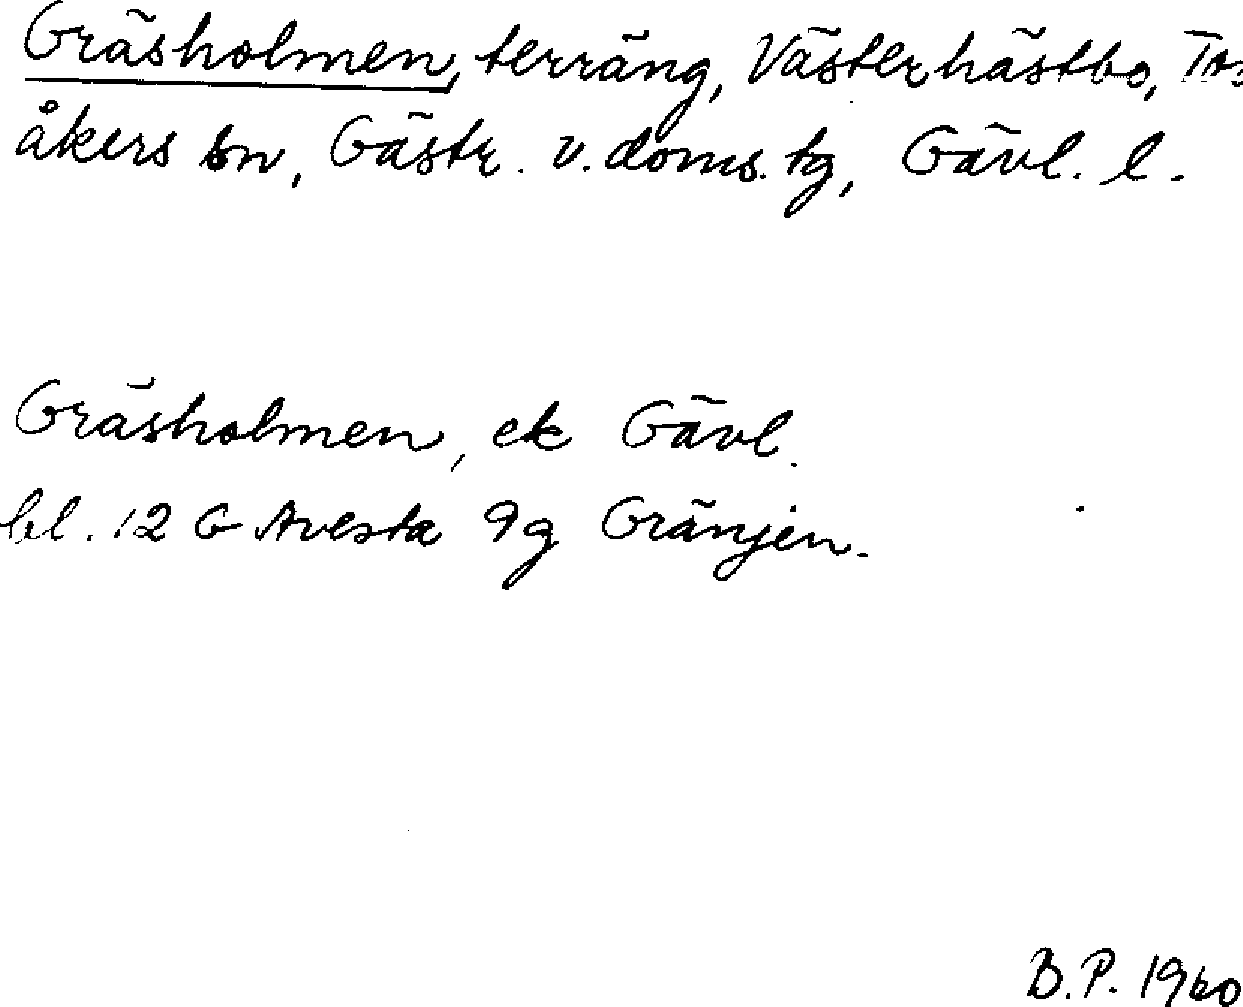 Gräsholmen, terräng, Västerhästbo, Tor
åkers sn, Gästr. v. doms. tg, Gävl. l.
Gräsholmen, ek Gävl.
bl. 12 G Avesta 9g Gränjen.
B.P. 1960